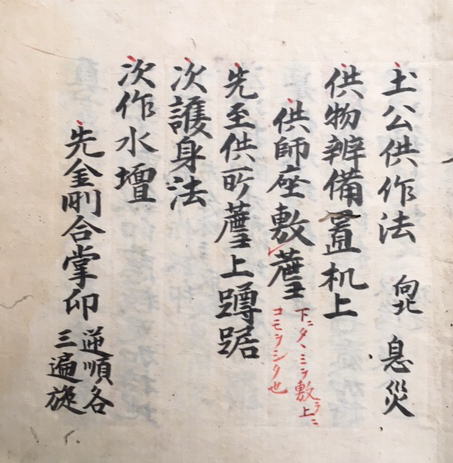 土公供作法 向北 息災
供物辨備置机上
供師座敷薦
下ニタヽミヲ敷上ニ
コモヲシク也
先至供所薦上蹲踞
次護身法
次作水壇
先金剛合掌印 逆順各
三遍旋